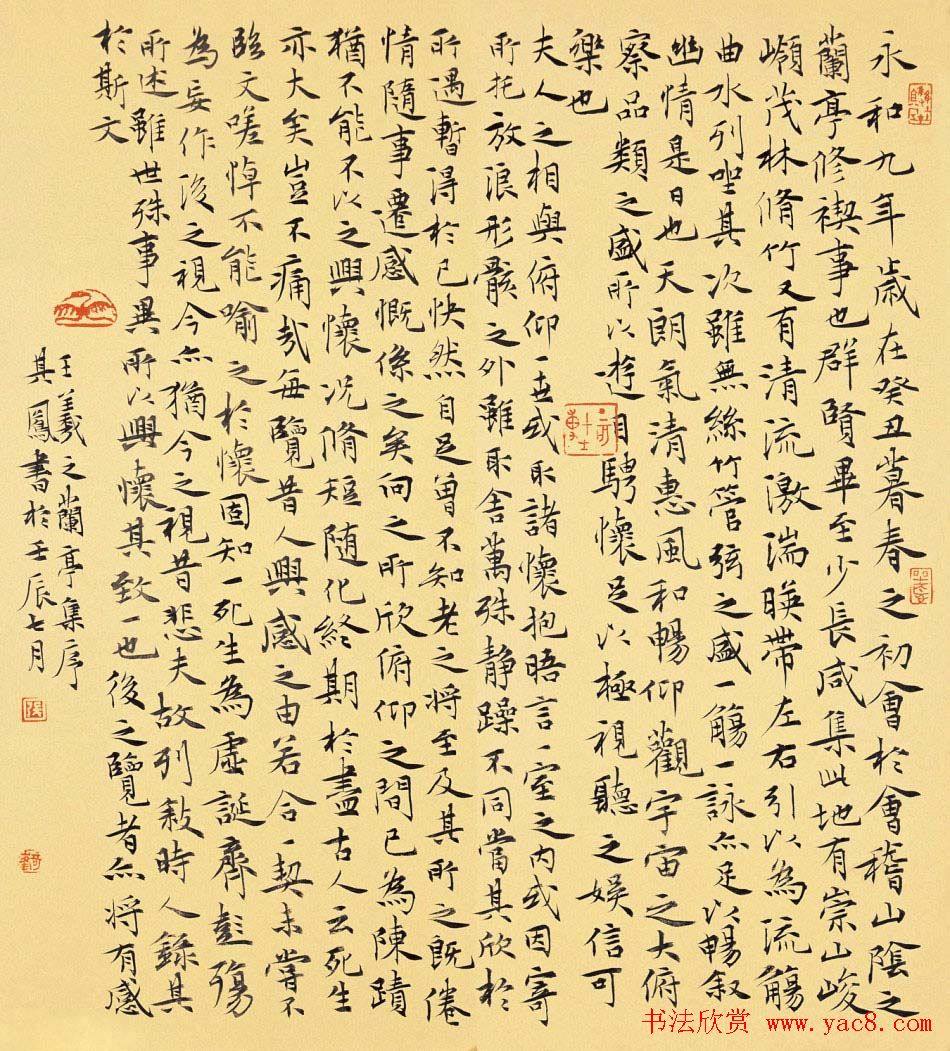 永和九年歲在癸丑暮春之初會於會稽山陰之
蘭亭修禊事也群賢畢至少長咸集此地有崇山峻
嶺茂林脩竹又有清流激湍暎帶左右引以為流觴
曲水列坐其次雖無絲竹管弦之盛一觴一詠亦足以暢叙
幽情是日也天朗氣清惠風和暢仰觀宇宙之大俯
察品類之盛所以遊目騁懷足以極視聽之娛信可
樂也
夫人之相與俯仰一世或取諸懷抱晤言一室之内或因寄
所托放浪形骸之外雖取舍萬殊静躁不同當其欣於
所遇暫得於己快然自足曾不知老之将至及其所之既倦
情隨事遷感慨係之矣向之所欣俯仰之間已為陳蹟
猶不能不以之興懷况脩短随化終期於盡古人云死生
亦大矣豈不痛哉每覽昔人興感之由若合一契未嘗不
臨文嗟悼不能喻之於懷固知一死生為虚誕齊彭殤
為妄作後之視今亦猶今之視昔悲夫故列敍時人錄其
所述雖世殊事異所以興懷其致一也後之覽者亦将有感
於斯文
王羲之蘭亭集序
其鳳書於壬辰七月
书法欣赏 www.yac8.com